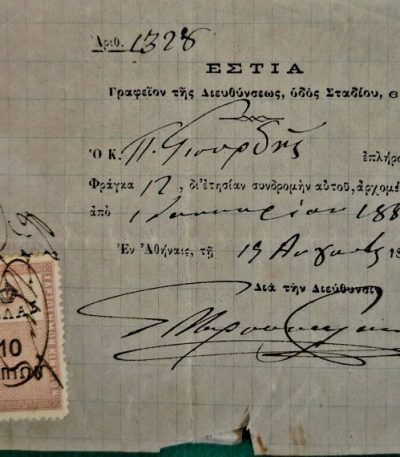 Ἀριθ. 1328
ΕΣΤΙΑ
Γραφεῖον τῆς Διευθύνσεως, ὁδὸς Σταδίου, 6
Ὁ Κ. Π. ἐπλήρω
Φράγκα 12, δι' ἐτησίαν συνδρομὴν αὑτοῦ, ἀρχομέ
ἀπὸ Ἰανουαρίου 188
Ἐν Ἀθήναις, τῇ 19 Αὐγούστου 18
Διὰ τὴν Διεύθυνσιν
ΛΛΑΣ
10
ΛΕΠΤΩΝ